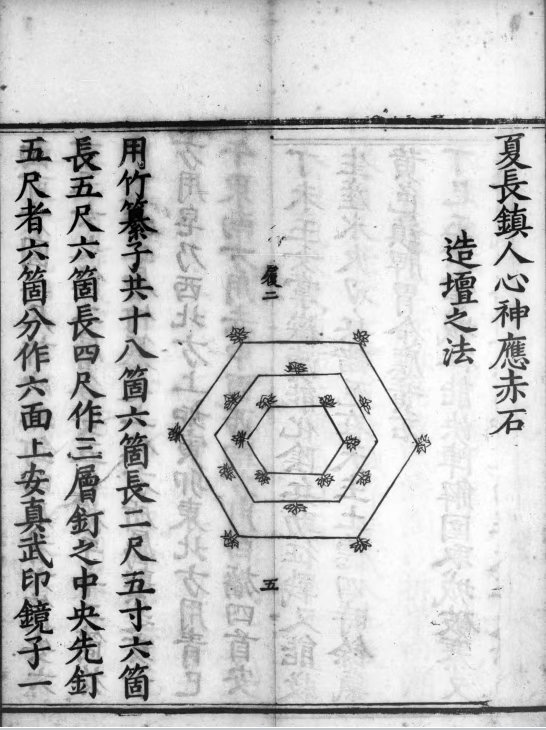 夏長鎮人心神應赤石
造壇之法
履二
五
用竹籤子共十八箇六箇長二尺五寸六箇
長五尺六箇長四尺作三層釘之中央先釘
五尺者六箇分作六面上安真武印鏡子一